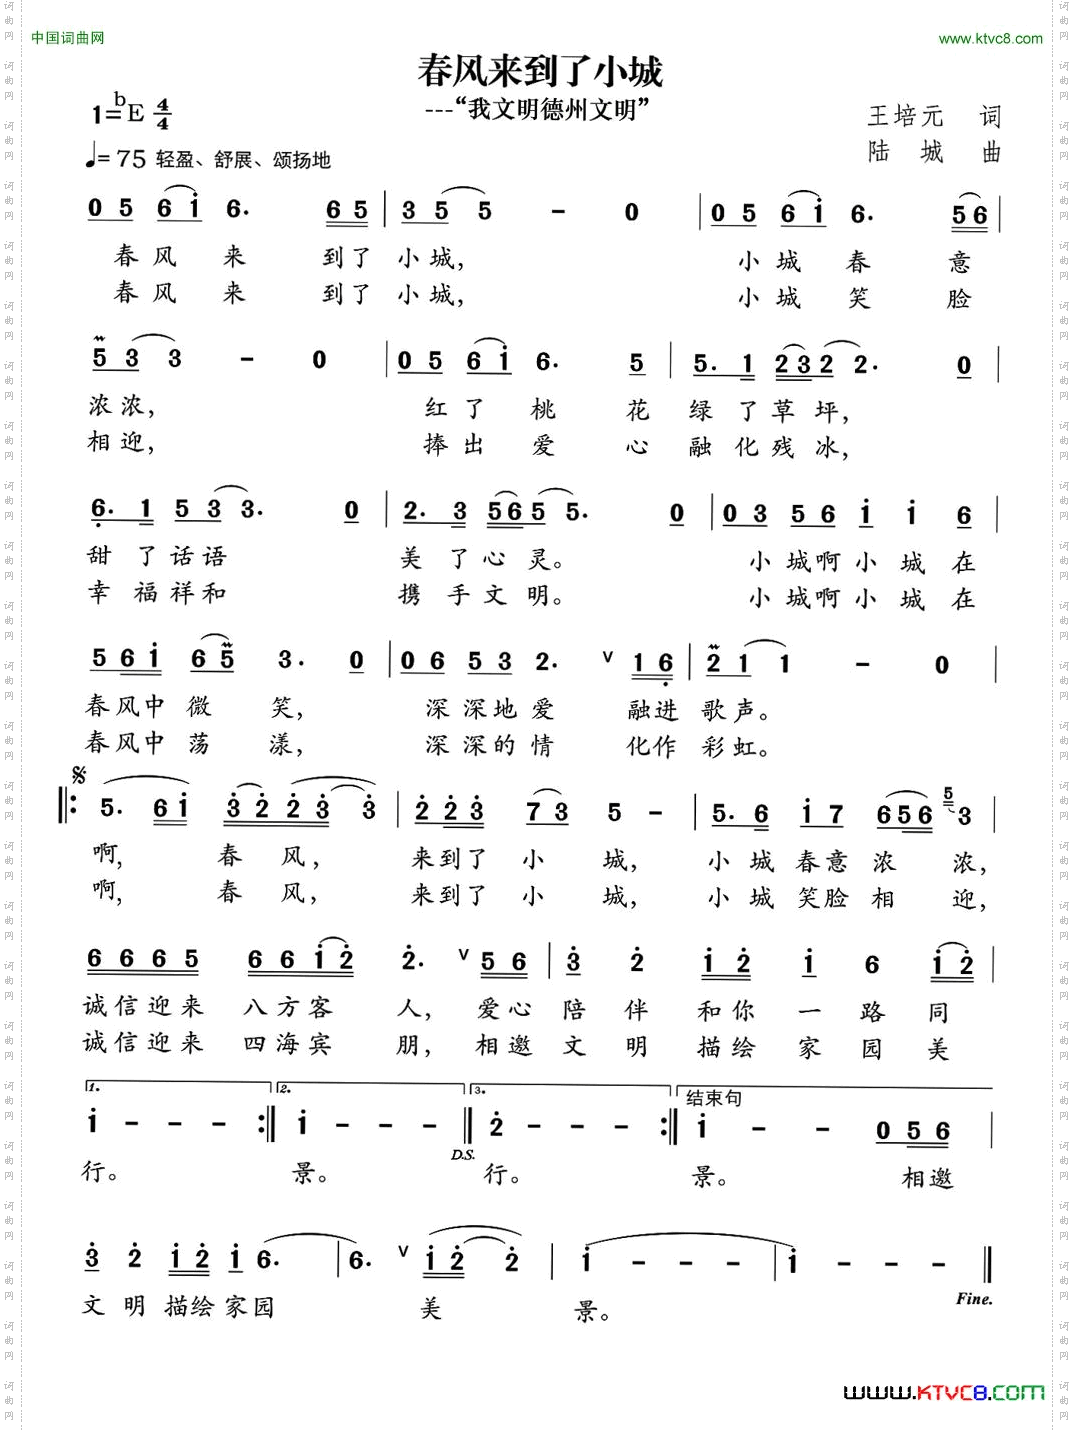 中国词曲网
www.ktvc8.com
春风来到了小城
---“我文明德州文明”
1=bE 4/4
王培元 词
♩=75 轻盈、舒展、颂扬地
陆城 曲
0 5 6 i 6. 6 5 | 3 5 5 - 0 | 0 5 6 i 6. 5 6 |
春风来 到了小城, 小城春 意
春风来 到了小城, 小城笑 脸
5 3 3 - 0 | 0 5 6 i 6. 5 | 5. 1 2 3 2 2. 0 |
浓浓, 红了桃 花 绿了草坪,
相迎, 捧出爱 心 融化残冰,
6. 1 5 3 3. 0 | 2. 3 5 6 5 5. 0 | 0 3 5 6 i i 6 |
甜了话语 美了心灵。 小城啊小城在
幸福祥和 携手文明。 小城啊小城在
5 6 i 6 5 3. 0 | 0 6 5 3 2. V 1 6 | 2 1 1 - 0 |
春风中微 笑, 深深地爱 融进歌声。
春风中荡 漾, 深深的情 化作彩虹。
5. 6 i 3 2 2 3 3 | 2 2 3 7 3 5 - | 5. 6 i 7 6 5 6 5 3 |
啊, 春风, 来到了小 城, 小城春意浓 浓,
啊, 春风, 来到了小 城, 小城笑脸相 迎,
6 6 6 5 6 6 i 2 2. V 5 6 | 3 2 i 2 i 6 i 2 |
诚信迎来八方客 人, 爱心陪伴和你一路同
诚信迎来四海宾 朋, 相邀文明描绘家园美
1. 2. 3. 结束句
i - - - :‖ i - - - ‖ 2 - - - :‖ i - - 0 5 6 |
D.S.
行。 景。 行。 景。 相邀
3 2 i 2 i 6. | 6. V i 2 2 | i - - - | i - - - ‖
文明描绘家园 美 景。
Fine.
WWW.KTVC8.COM